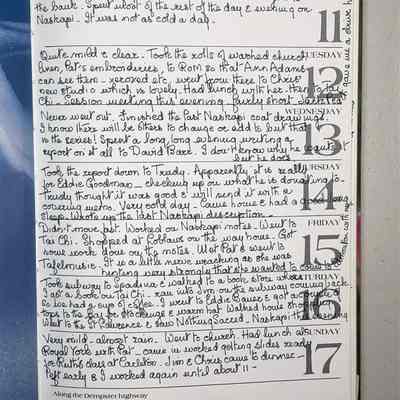 the bank. Spent most of the rest of the day & evening on
Naskapi. It was not as cold a day.
11
Quite mild & clear. Took the rolls of washed church
linen, Pat's embroideries, to ROM so that Ann Adams
can see them - xeroxed etc. went from there to Chris'
new studio which is lovely. Had lunch with her then to Tai
Chi. Session meeting this evening fairly short
TUESDAY
12
Never went out. Finished the last Naskapi coat drawings.
I know there will be others to change or add to but that
is the series! Spent a long, long evening writing a
report on it all to David Baxe. I don't know why he wants it
but he does
WEDNESDAY
13
Took the report down to Trudy. Apparently it is really
for Eddie Goodman - checking up on what he is donating to.
Trudy thought it was good & will send it with a
covering memo. Very cold day. Came home & had a good long
sleep. Wrote up the last Naskapi description -
THURSDAY
14
Didn't move fast. Worked on Naskapi notes. Went to
Tai Chi. Shopped at Loblaws on the way home. Got
some work done on the notes. Met Pat & went to
Tafelmusik. It is a little nerve wracking as she was
hinting very strongly that she wanted to come to
FRIDAY
15
Took subway to Spadina & walked to a book store where
I got a book on Tai Chi - ran into Jim on the subway coming back
so we had a cup of coffee. I went to Eddie Bauer & got
for stockings & warm hat. Walked home
Went to the St. Lawrence & saw Nothing Sacred. Naskapi this evening
SATURDAY
16
Very mild - almost rain. Went to church. Had lunch at
Royal York with Pat. Came in worked getting slides ready
for Ruth's class at Carleton. Jim & Chris came to dinner -
left early & I worked again until about 11 -
SUNDAY
17
Along the Dempster highway